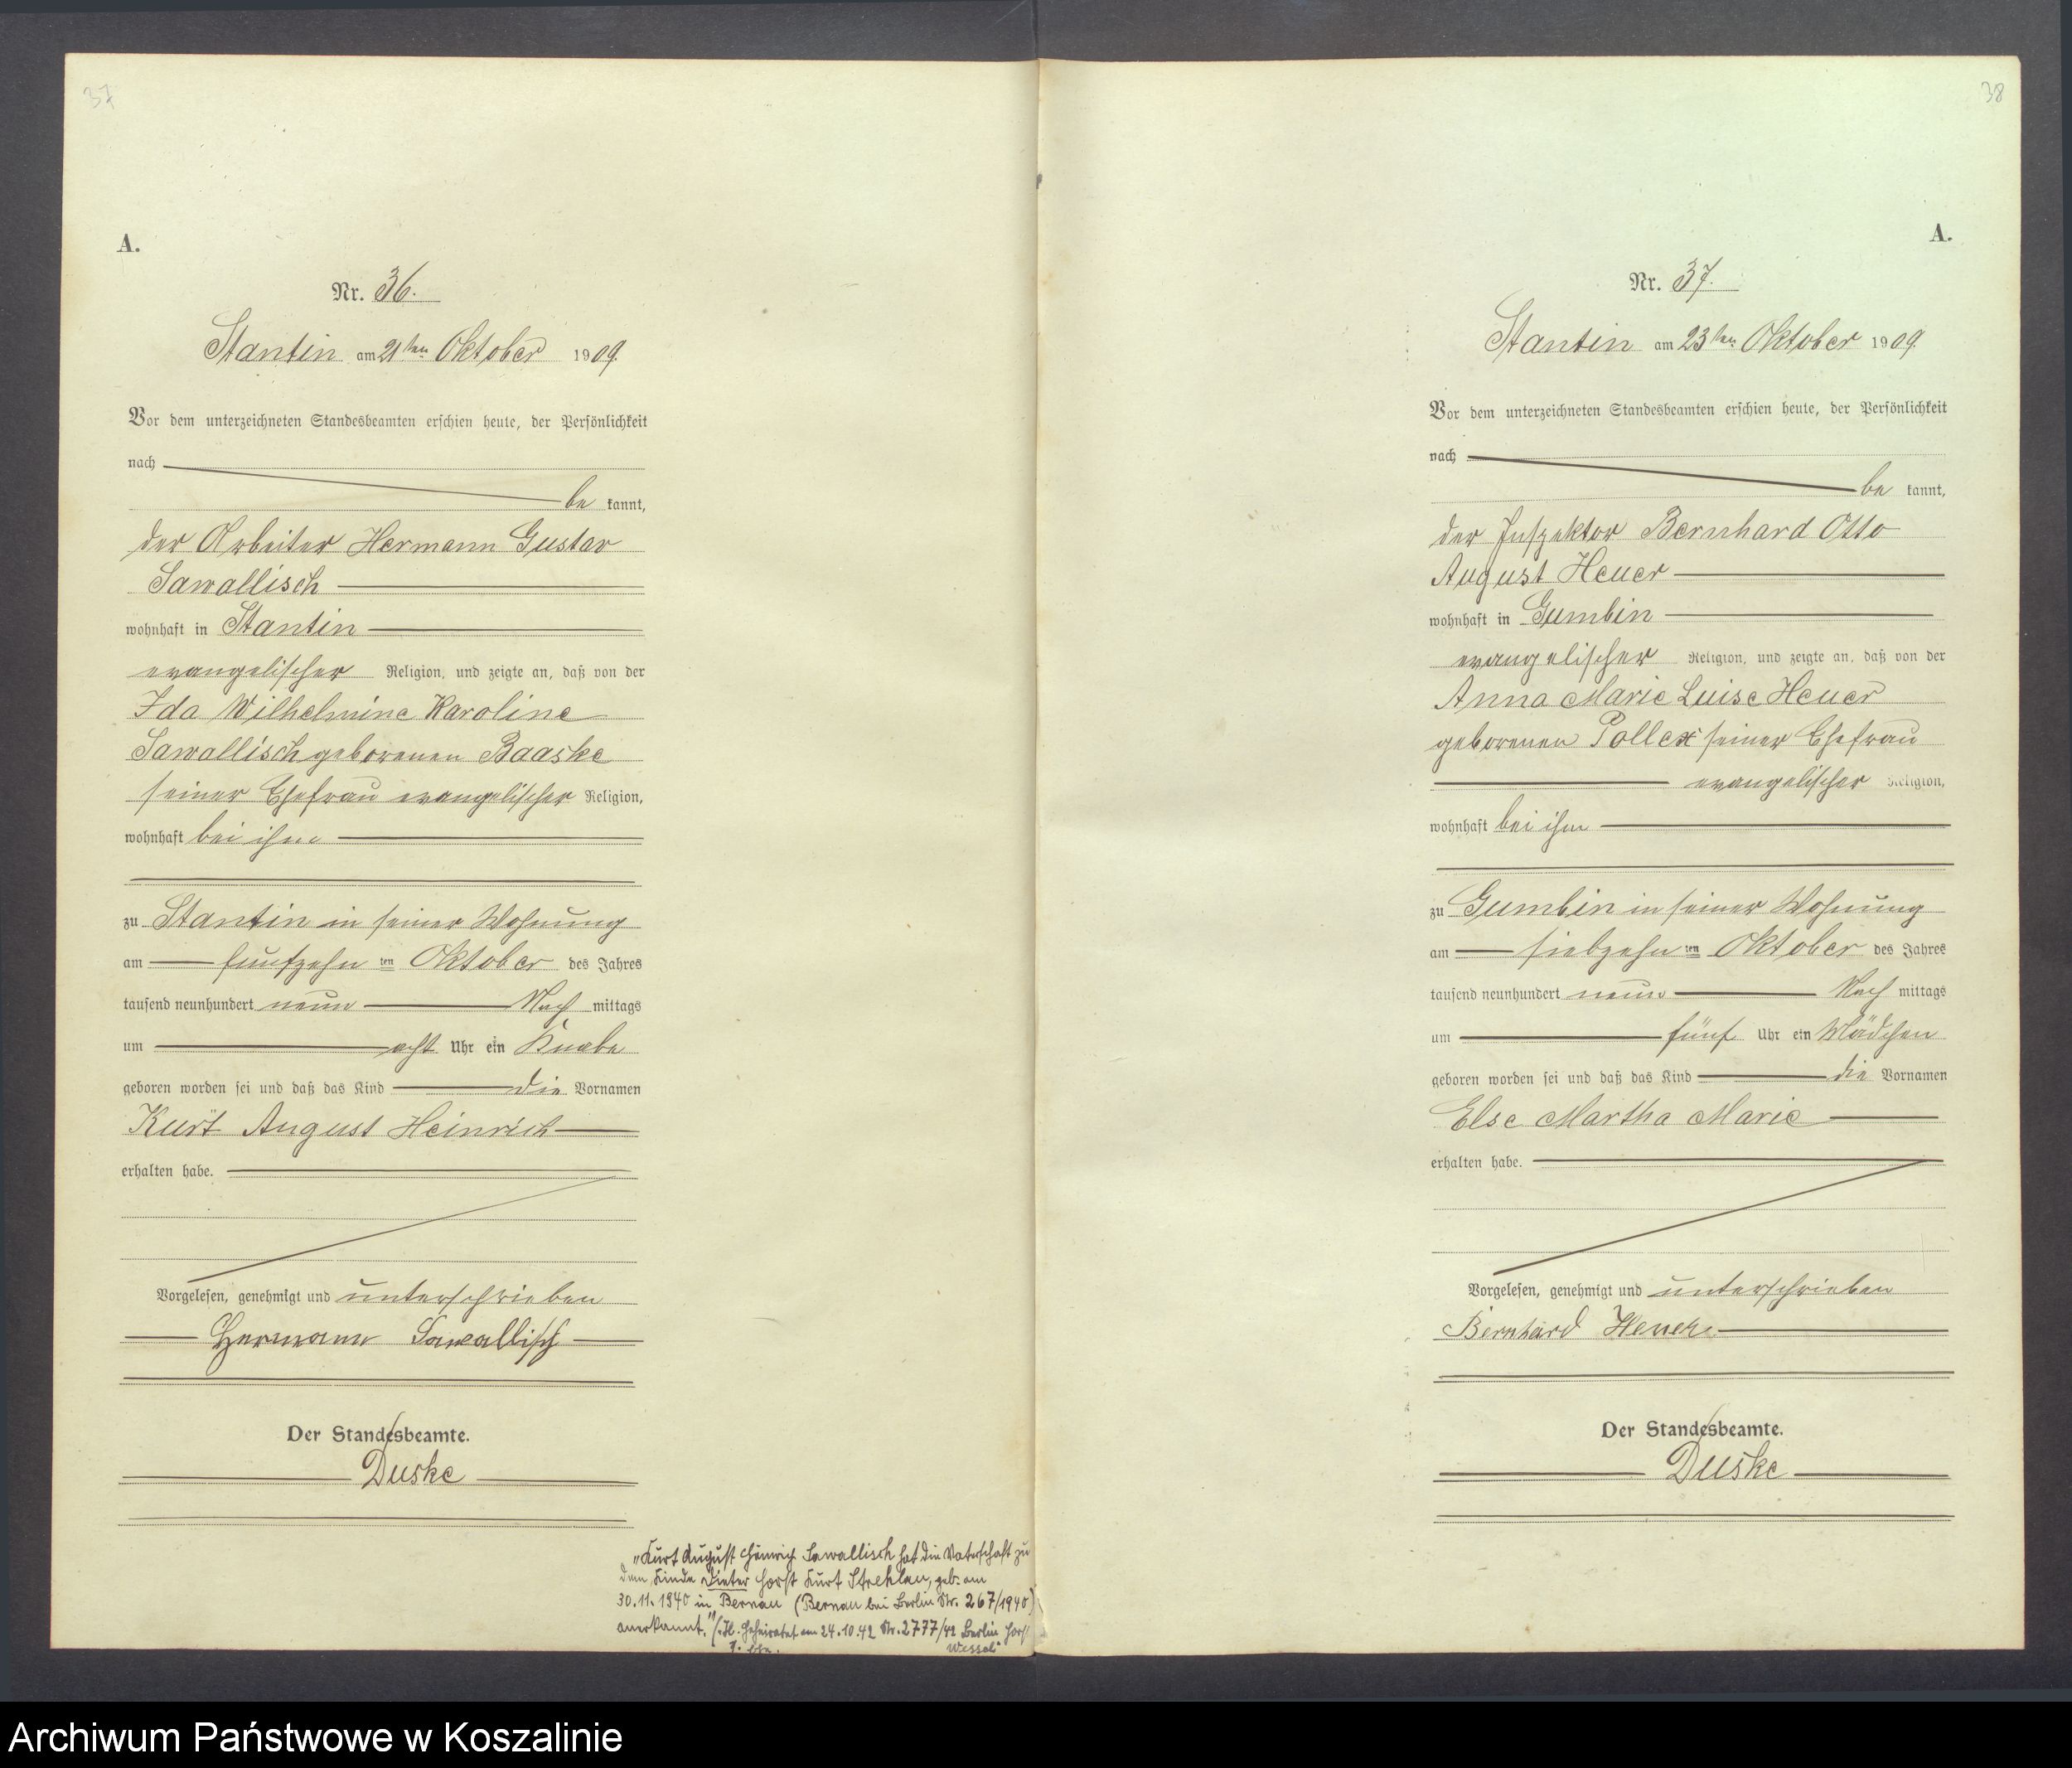 37
A.
Nr. 36.
Stantin am 21ten Oktober 1909.
Vor dem unterzeichneten Standesbeamten erschien heute, der Persönlichkeit
nach
be kannt,
der Arbeiter Hermann Gustav
Sawallisch
wohnhaft in Stantin
evangelischer Religion, und zeigte an, daß von der
Ida Wilhelmine Karoline
Sawallisch geborenen Baaske
seiner Ehefrau evangelischer Religion,
wohnhaft bei ihm
zu Stantin in seiner Wohnung
am fünfzehn ten Oktober des Jahres
tausend neunhundert neun Nach mittags
um acht Uhr ein Knabe
geboren worden sei und daß das Kind die Vornamen
Kurt August Heinrich
erhalten habe.
Vorgelesen, genehmigt und unterschrieben
Hermann Sawallisch
Der Standesbeamte.
Duske
"Kurt August Heinrich Sawallisch hat die Vaterschaft zu
dem Kinde Dieter Horst Kurt Strehlau, geb. am
30.11.1940 in Bernau (Bernau bei Berlin Nr. 267/1940)
anerkannt." Geheiratet am 24.10.42 Nr. 2777/42 Berlin Horst
Wessel"
38
A.
Nr. 37.
Stantin am 23ten Oktober 1909.
Vor dem unterzeichneten Standesbeamten erschien heute, der Persönlichkeit
nach
be kannt,
der Inspektor Bernhard Otto
August Heuer
wohnhaft in Gumbin
evangelischer Religion, und zeigte an, daß von der
Anna Marie Luise Heuer
geborenen Pollex seiner Ehefrau
evangelischer Religion,
wohnhaft bei ihm
zu Gumbin in seiner Wohnung
am siebzehn ten Oktober des Jahres
tausend neunhundert neun Nach mittags
um fünf Uhr ein Mädchen
geboren worden sei und daß das Kind die Vornamen
Else Martha Marie
erhalten habe.
Vorgelesen, genehmigt und unterschrieben
Bernhard Heuer
Der Standesbeamte.
Duske
Archiwum Państwowe w Koszalinie